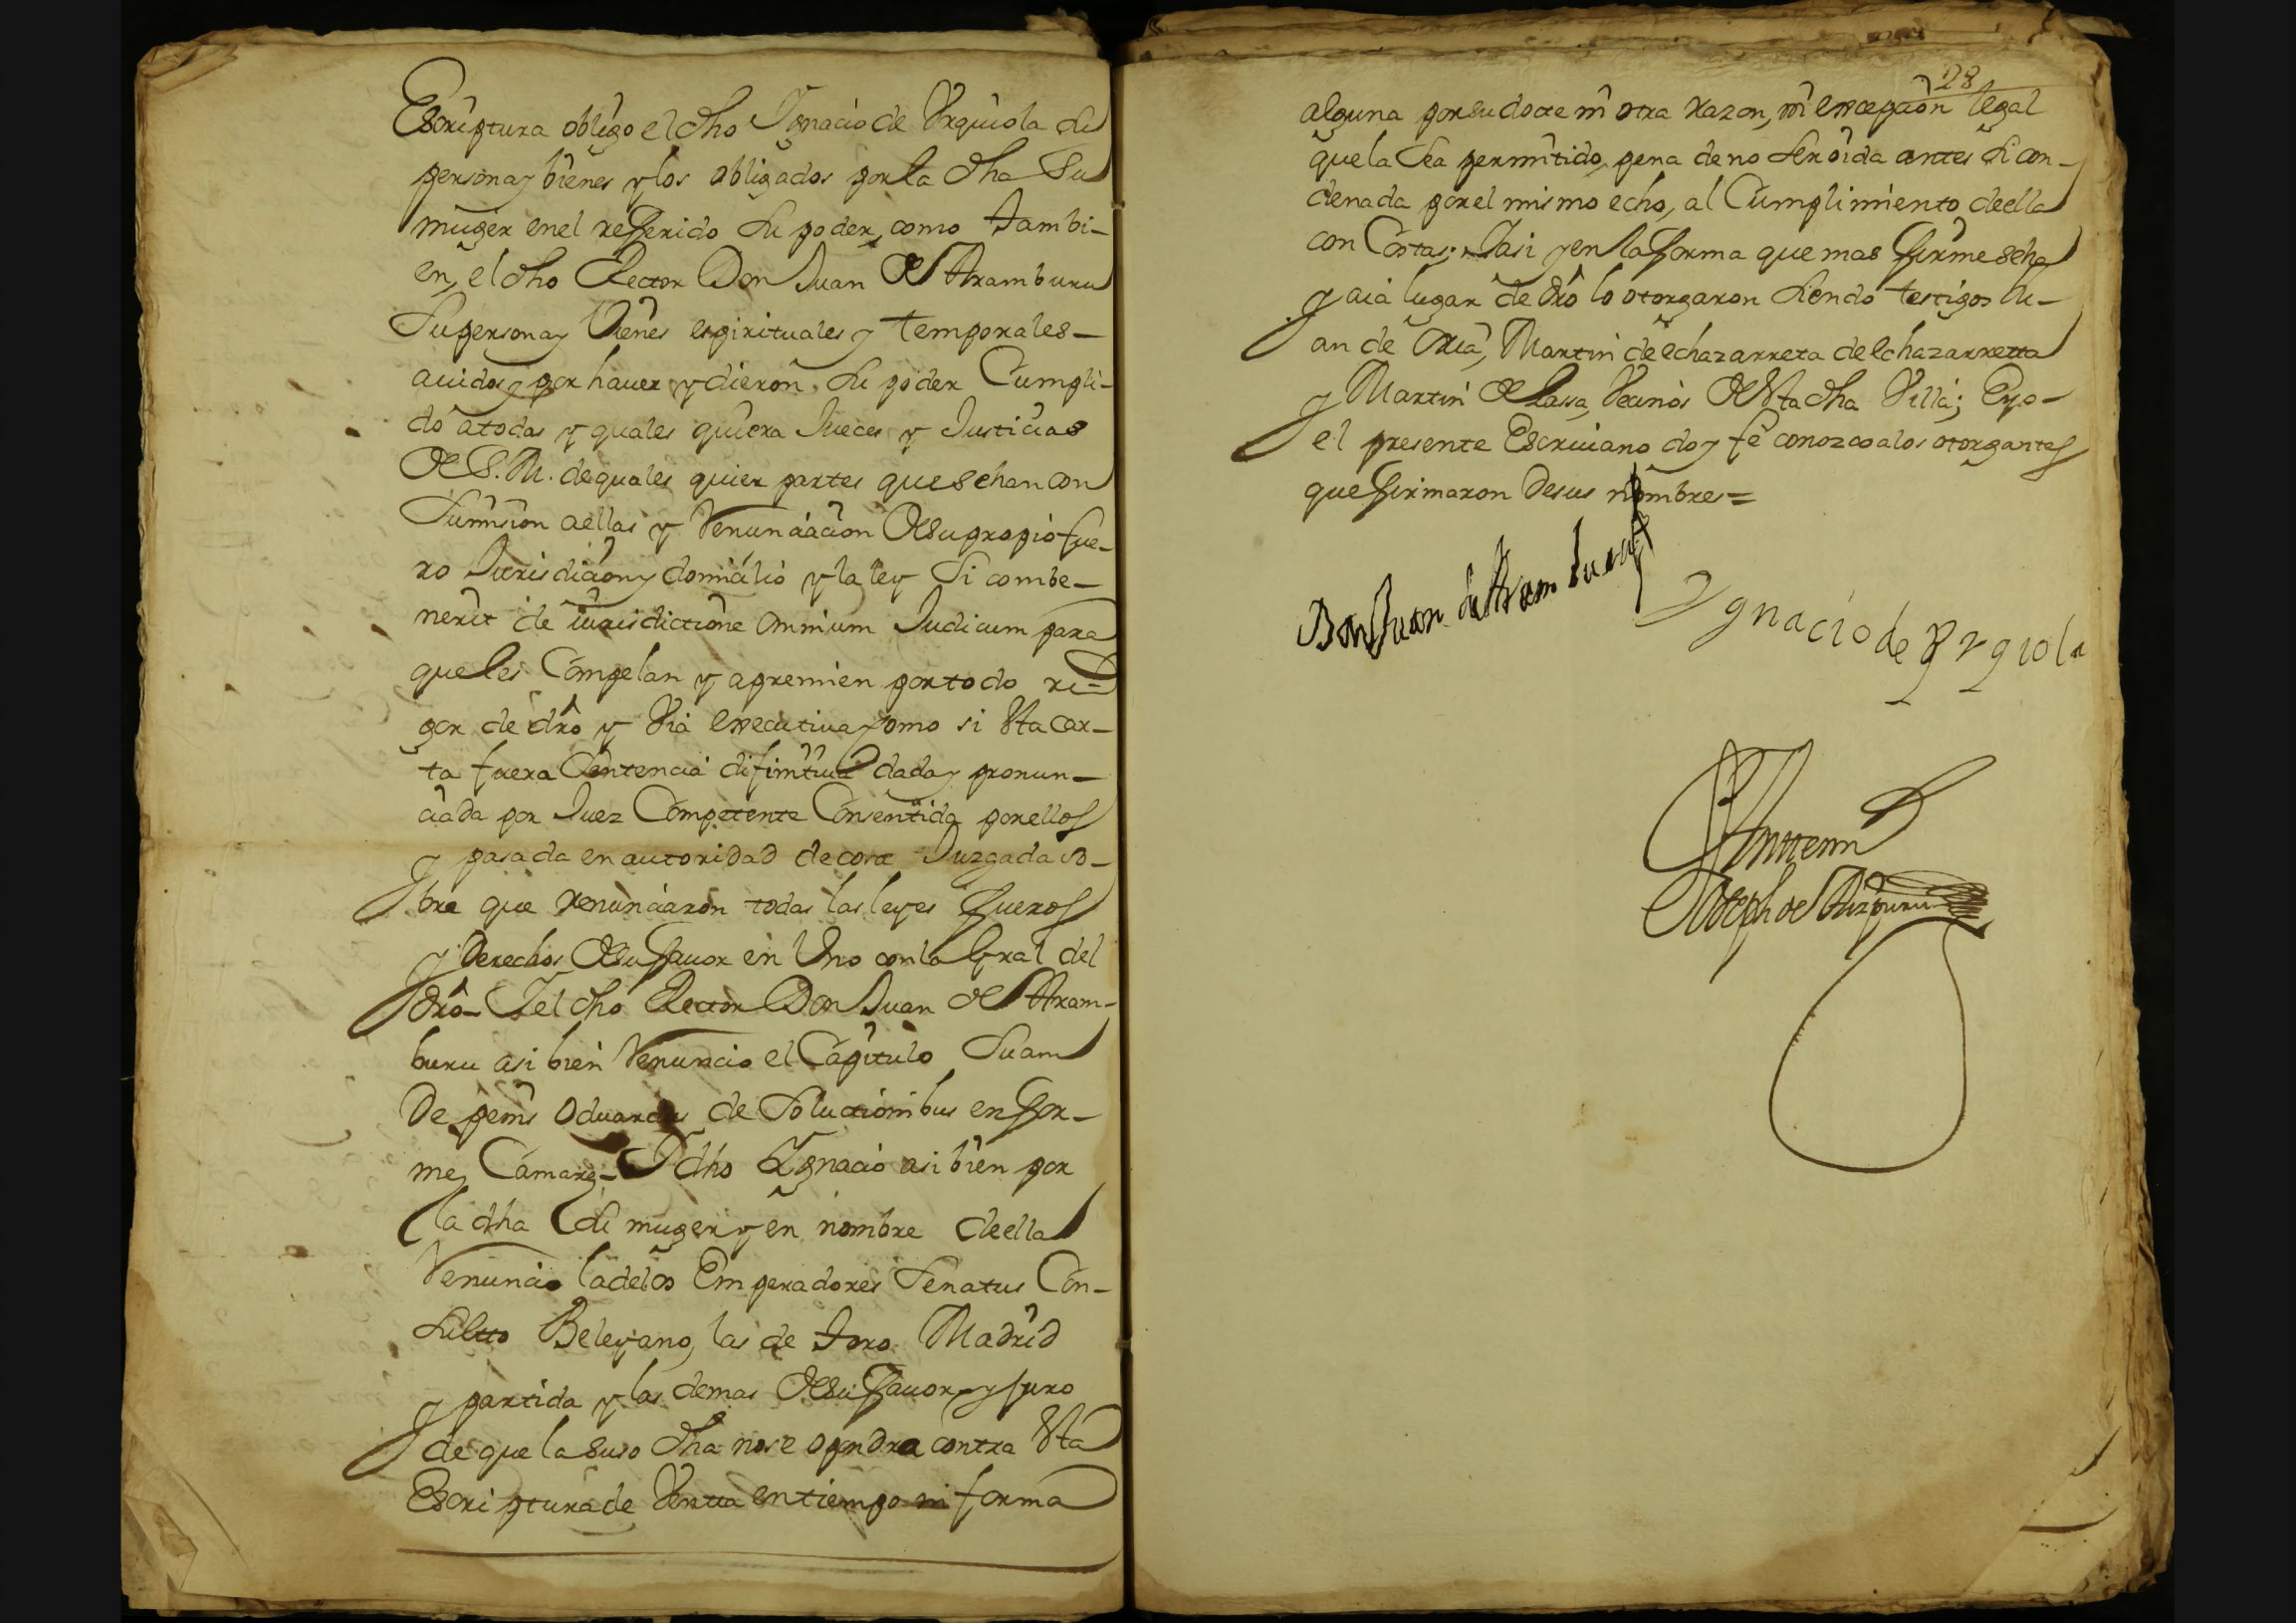 Escriptura obligo el dho Ignacio de Vrquiola su
persona y bienes y los obligados por la dha su
muger en el referido su poder, como tambi-
en, el dho Rector Don Juan de Aramburu
su persona y bienes espirituales y temporales-
auidos y por hauer y dieron su poder Cumpli-
do a todas y quales quiera Jueces y Justicias
de S. M. de quales quier partes que sehan con
sumision a ellas y Renunciacion de su propio fue-
ro Jurisdicion y domicilio y la ley si combe-
nerit de iurisdictione omnium Judicum para
que les Compelan y apremien por todo ri-
gor de dro y Via executiva como si esta car-
ta fuera Sentencia difinitiua dada y pronun-
ciada por Juez Competente Consentida por ellos
y pasada en autoridad de cosa Juzgada so-
bre que renunciaron todas las leyes fueros
y Derechos de su fauor en Vno con la Gral del
dro- Y el dho Rector Don Juan de Aram-
buru asi bien Renuncio el Capitulo suam
De penis Oduardus de Solucionibus en for-
me Camare- Y dho Ignacio asi bien por
la dha su muger y en nombre de ella
Renuncio la de los Emperadores Senatus Con-
sultto Beleyano, las de Toro Madrid
y partida y las demas de su fauor y juro
de que la suso dha no se opondra contra esta
Escriptura de Ventta en tiempo ni forma
28
alguna por su docte ni otra razon, ni excepcion legal
que la sea permitido, pena de no ser oida antes si con-
denada por el mismo echo, al Cumplimiento de ella
con Costas; Y asi y en la forma que mas firme seha
y aia lugar de dro lo otorgaron siendo testigos Ju-
an de Oria, Martin de echazarreta de echazarretta
y Martin de Lassa, Vecinos de esta dha Villa; E yo-
el presente Escriuano doy fe conozco a los otorgantes
que firmaron de sus nombres=
Don Juan de Aramburu
Ygnacio de Vrqiola
Antte mi
Joseph de Aizpuru